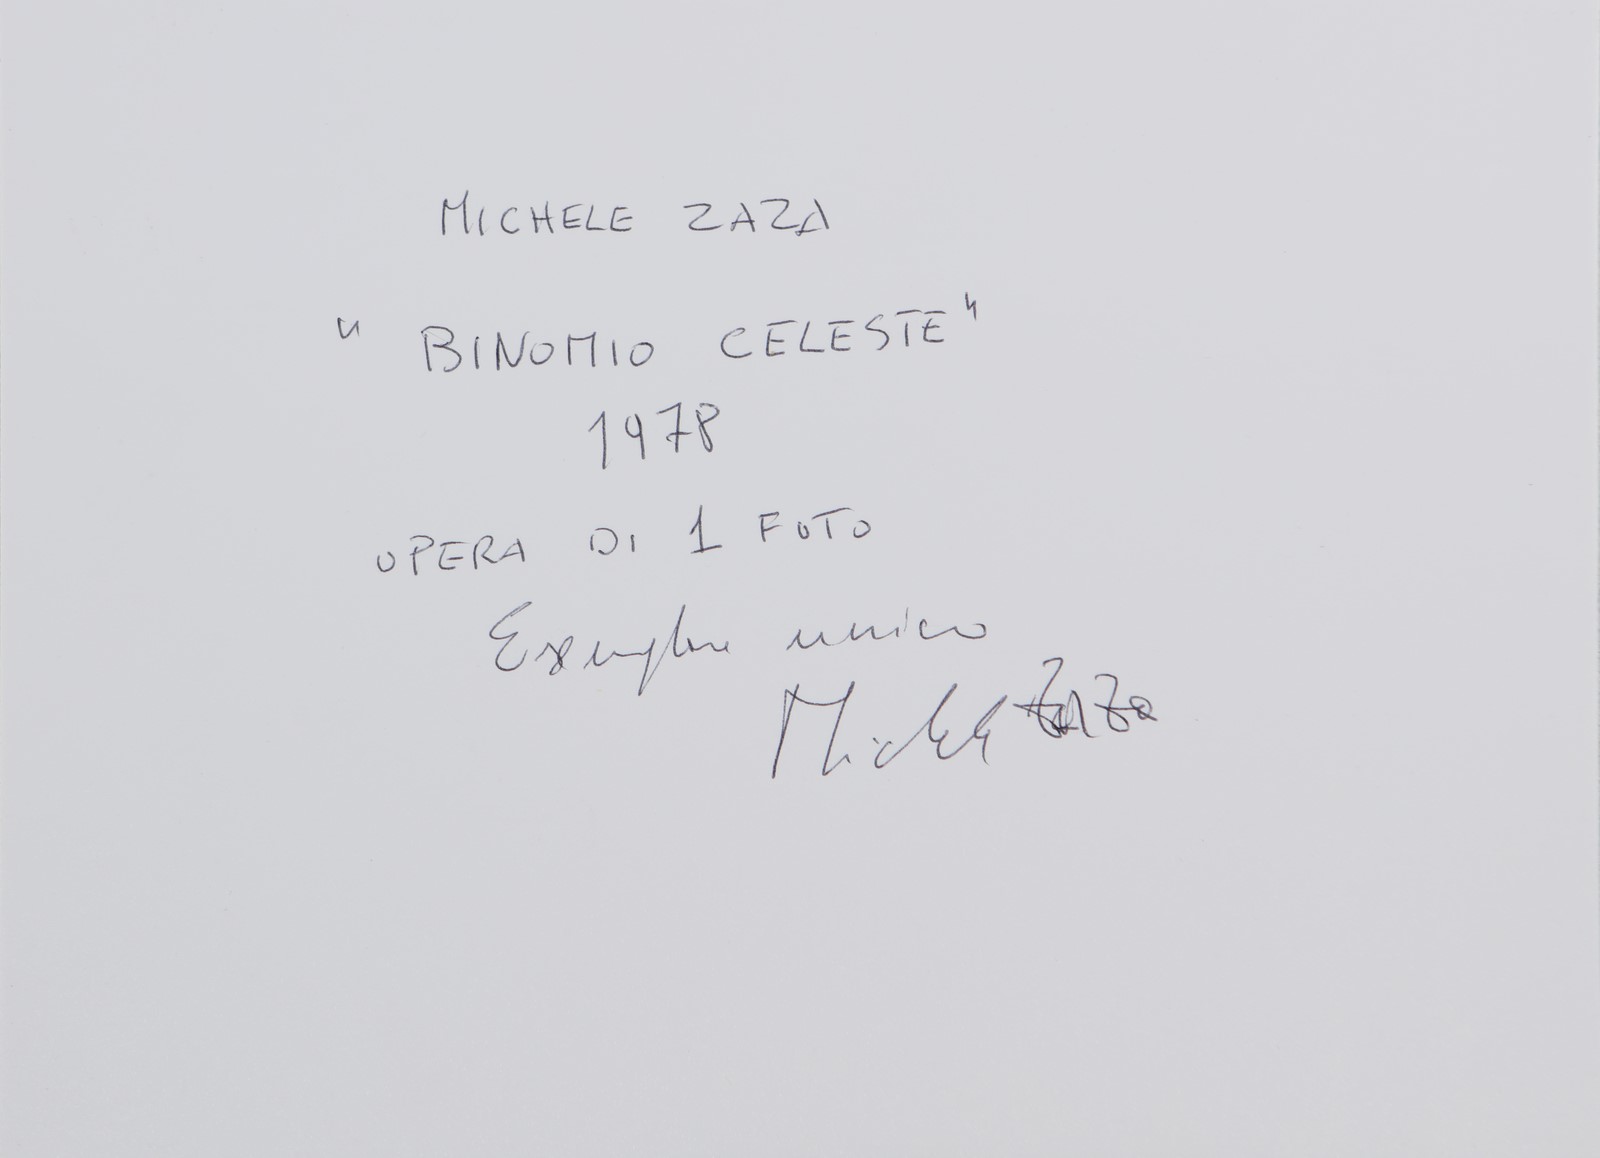 MICHELE ZAZA
"BINOMIO CELESTE"
1978
OPERA DI 1 FOTO
Esemplare unico
Michele Zaza